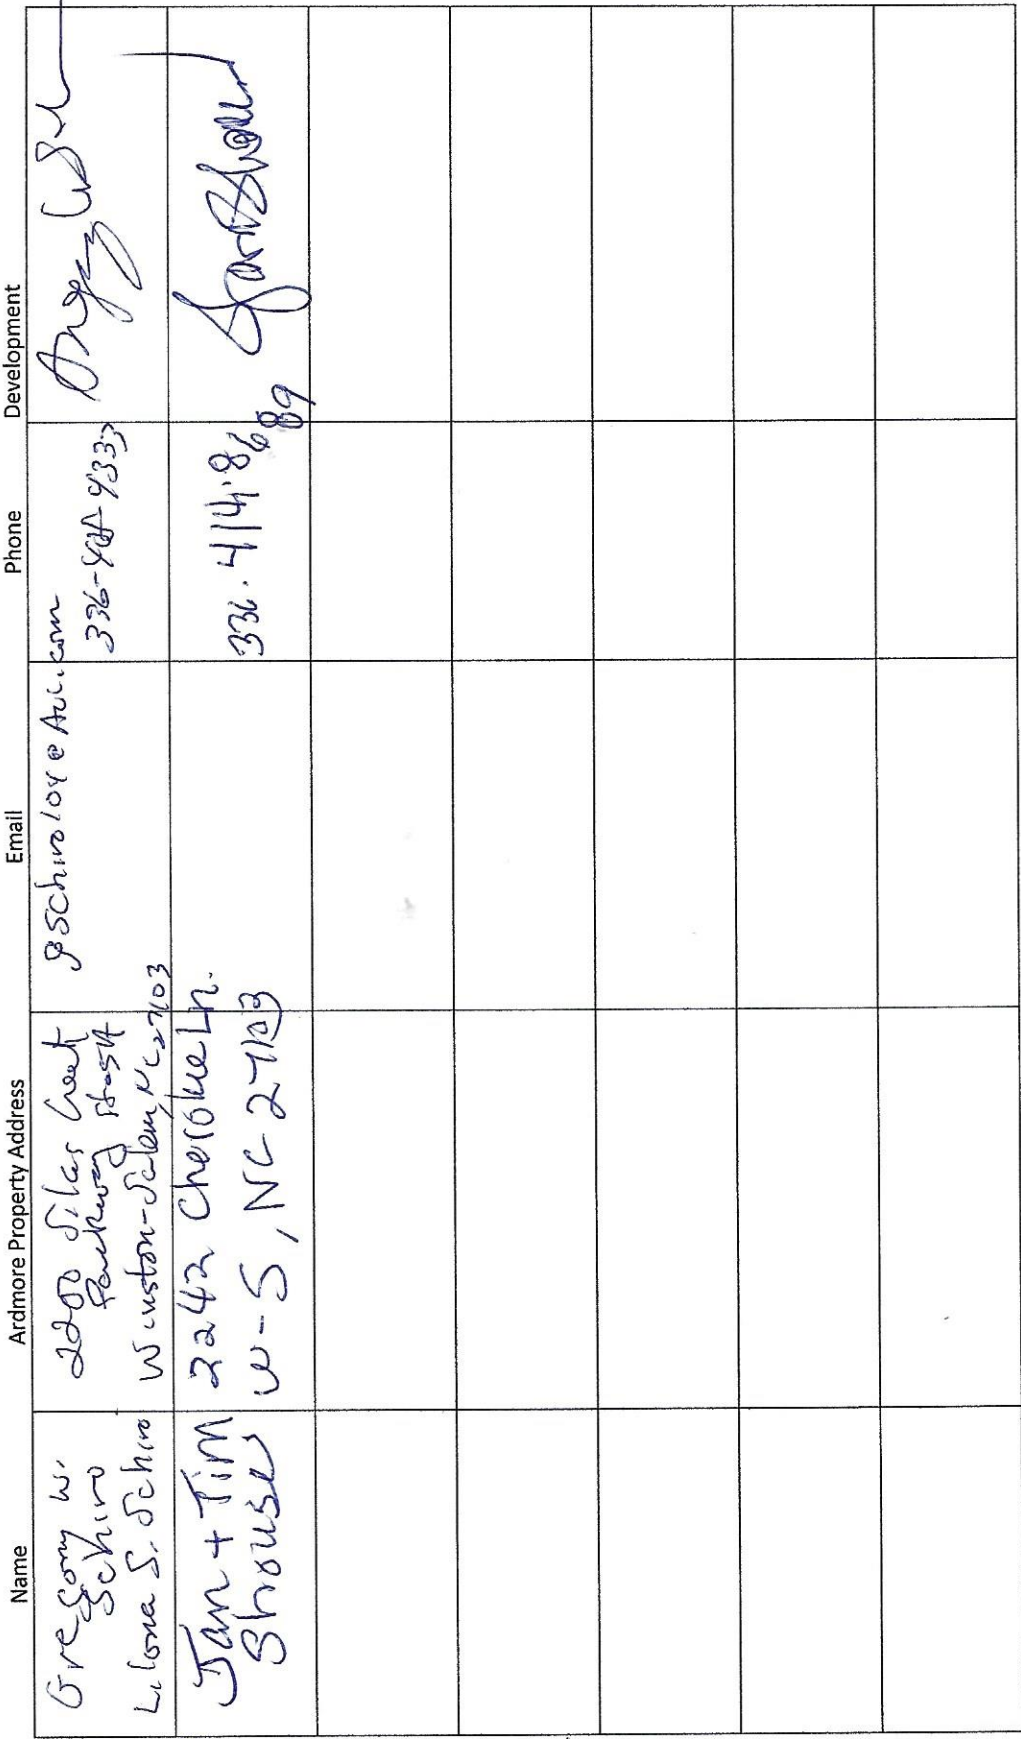 Name Ardmore Property Address Email Phone Development
Gregory W.
Schiro
Lilona S. Schiro
2200 Silas Creek
Parkway
Winston-Salem, NC 27103
gschiro104@AOL.com
336-
Jan + Tim
Shouse
2242 Cherokee Ln.
W-S, NC 27103
336.414.8689
Jan Shouse